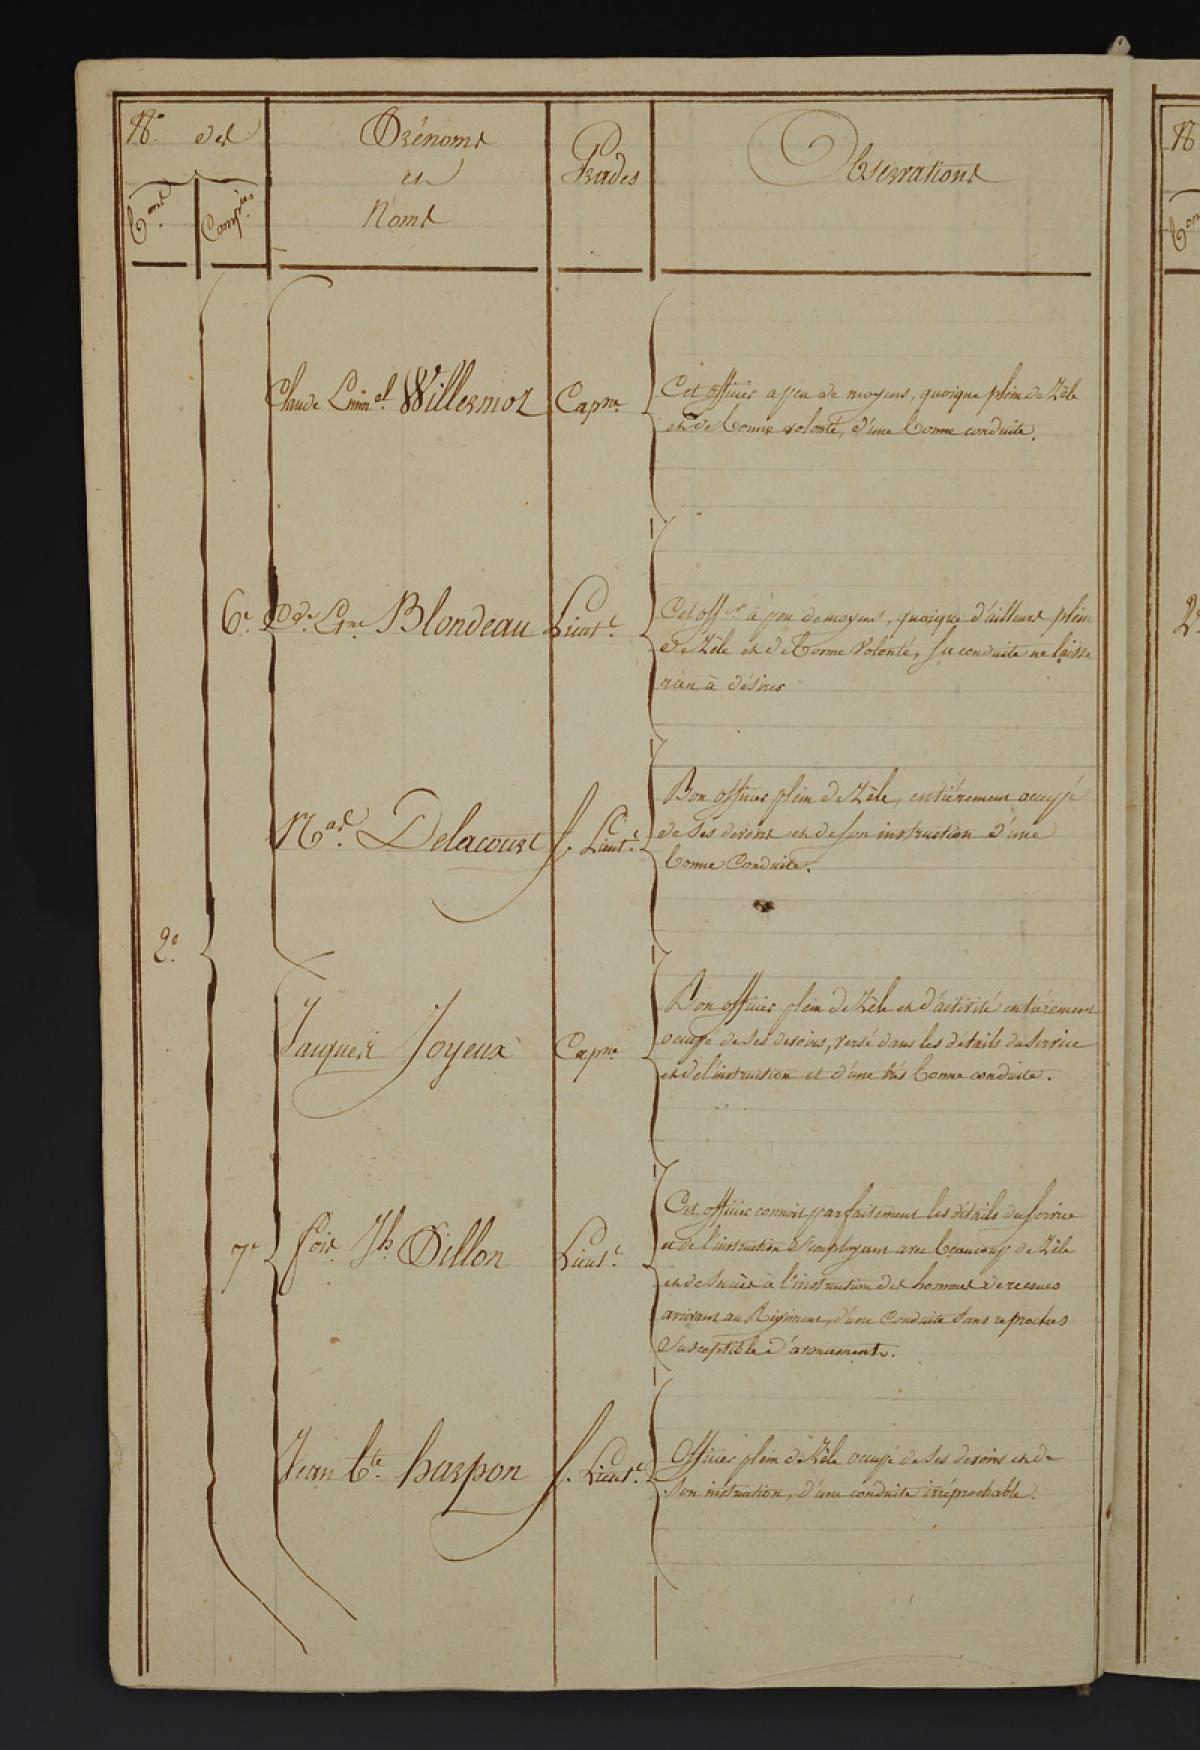 Nos des
Prénoms
et
Noms
Grades
Observations
Bons
Compies
Claude Emmel Willermoz
Capne
Cet officier a peu de moyens, quoique plein de Zèle
et de bonne volonté, d'une bonne conduite.
6e
Blondeau
Lieutt
Cet offer à peu de moyens, quoique d'ailleurs plein
de Zèle et de bonne volonté, sa conduite ne laisse
rien à désirer
Nas Delacourt
S. Lieutt
Bon officier plein de Zèle, entièrement occupé
de ses devoirs et de son instruction d'une
bonne Conduite.
2e
Jacques Joyeux
Capne
Bon officier plein de Zèle et d'activité entièrement
occupé de ses devoirs, versé dans les détails du service
et de l'instruction et d'une très bonne conduite.
7e
fois Jh Dillon
Lieutt
Cet officier connoit parfaitement les détails du service
et de l'instruction s'employant avec beaucoup de Zèle
et de succès à l'instruction des hommes de recrues
arrivant au Régiment, d'une Conduite sans reproches
Susceptible d'avancement.
Jean bte harpon
S. Lieutt
Officier plein de Zèle occupé de ses devoirs et de
son instruction, d'une conduite irréprochable.
N
Bon
2